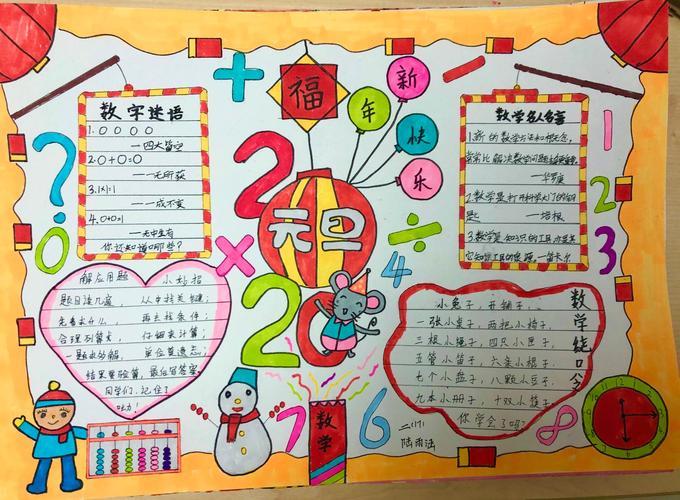 福
新
年
快
乐
元旦
2020
数字迷语
1.0 0 0 0
一四大皆空
2.0+0=0
一无所获
3.1×1=1
一一成不变
4.0+0=1
一无中生有
你还知道哪些?
数学名人名言
1.新的数学方法和概念,
常常比解决数学问题本身更重要
一华罗庚
2.数学是打开科学大门的钥
匙
一培根
3.数学是知识的工具
一笛卡尔
解应用题 小妙招
题目读几遍,从中找关键;
先看求什么,再去找条件;
合理列算式,仔细来计算;
一题求多解,单位莫遗忘;
结果要验算,最后写答案。
同学们,记住了
吗?
数学绕口令
小兔子,开铺子,
一张小桌子,两把小椅子,
三根小绳子,四只小匣子,
五管小笛子,六条小棍子,
七个小盘子,八颗小豆子,
九本小册子,十双小筷子,
你学会了吗?
数学
二(11)
? 0 1 2 3 4 7 6 8